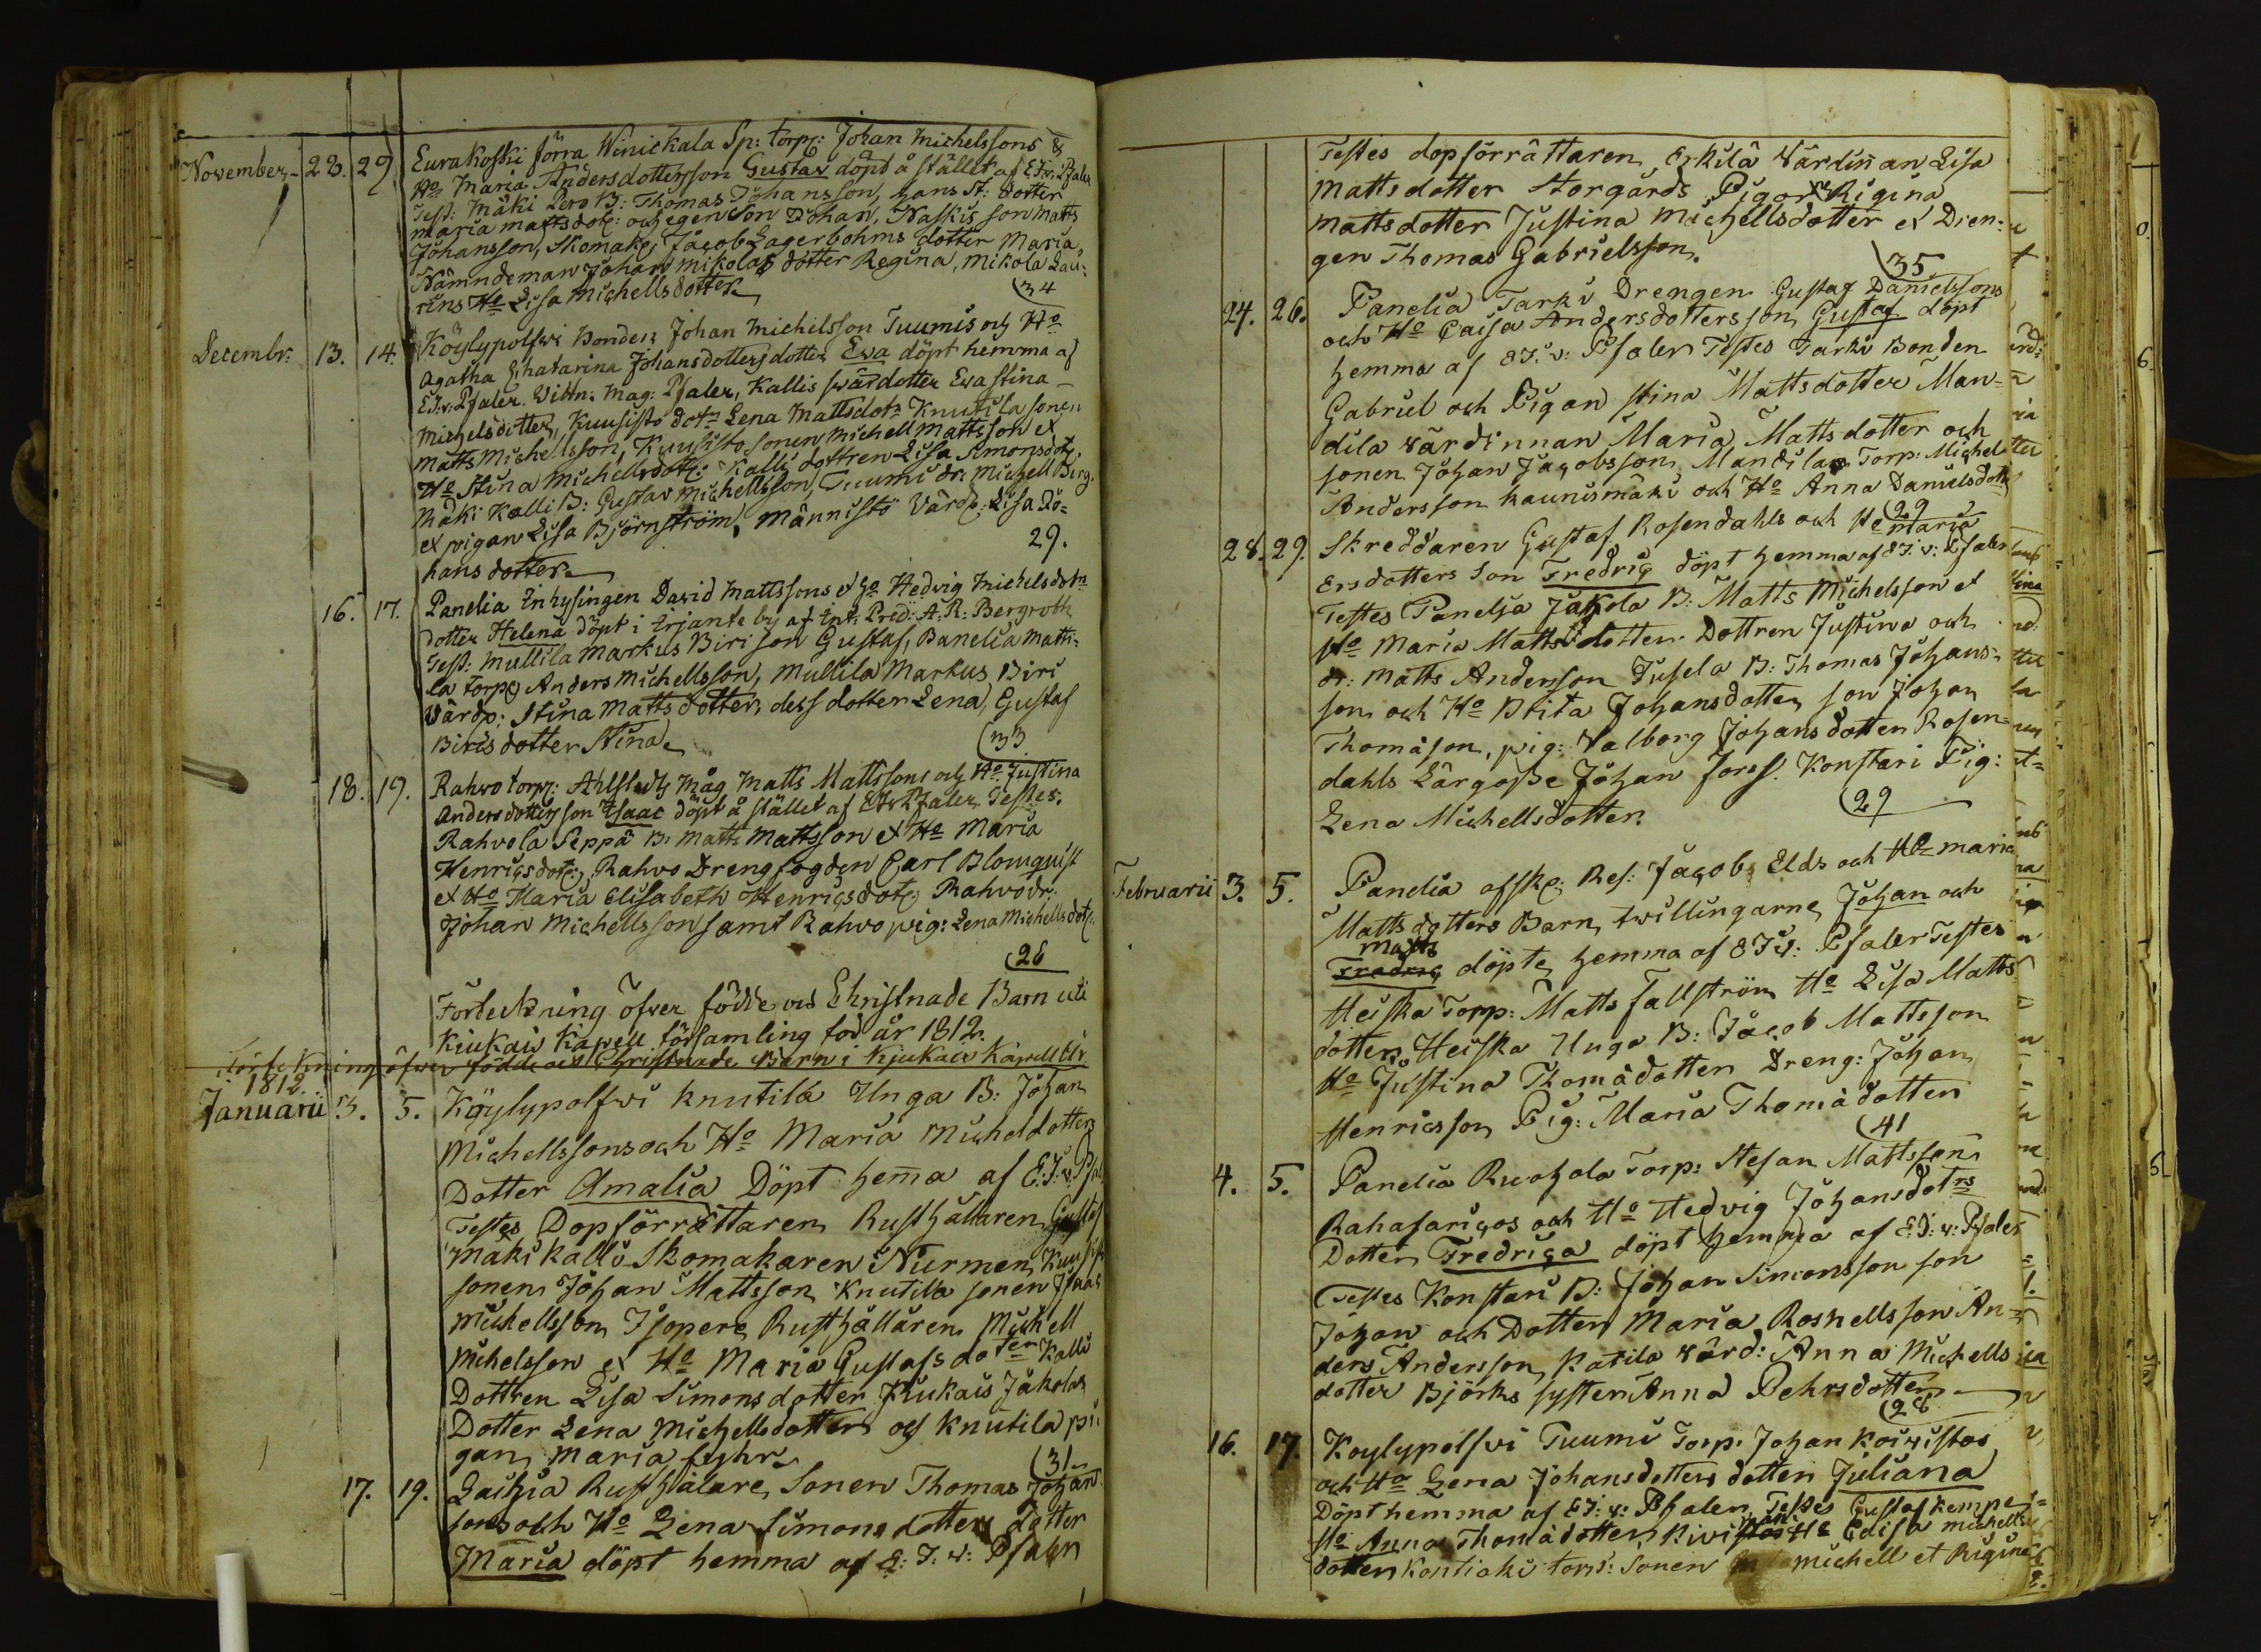 November 23. 29. Eurakoski förra Winickala Sp: torp: Johan Michelssons &
Ho Maria Andersdotters son Gustav döpt å stället af E.J.v: Pfaler
Test: Mäki Pero B: Thomas Johansson, hans st: dotter
Maria Mattsdotr: och egen Son Johan, Naskis son Matts
Johansson, Skomakr Jacob Lagerbohms dotter Maria
Nämndeman Johan Mikolas dotter Regina, Mikola Lau-
rins Ho Lisa Michellsdotter
34
Decembr: 13. 14. Köylypolfvi Bonden Johan Michelsson Tuumis och Ho
Agatha Chatarina Johansdotters dotter Ewa döpt hemma af
E.J.v: Pfaler. Vittn: Mag: Pfaler, Kallis svärdotter Ewa Stina
Michelsdotter, Kuusisto dotr Lena Mattsdotr Knutila sonen
Matts Michellsson, Kuusisto sonen Michell Mattsson et
Ho Stina Michellsdotr: Kallis dottren Lisa Simonsdotr,
Mäki Kalli B: Gustav Michellsson, Tuumi dr: Michell Berg-
et pigan Lisa Björnström, Männistö Värdr: Lisa Jo=
hans dotter
29.
16. 17. Panelia Inhysingen David Mattssons et Ho Hedvig Michelsdotrs
dotter Helena döpt i Irjante by af Int: Pred: A. R. Bergroth
Test: Mullila Markus Biri son Gustaf, Panelia Matti-
la torpr Anders Michellsson, Mullila Markus Biri
Värdr: Stina Matts dotter, dess dotter Lena, Gustaf
Biris dotter Stina
33
18. 19. Rahvo torpr: Ahlstedts Måg Matts Mattssons och Ho Justina
Andersdotters son Isaac döpt å stället af E.J.v. Pfaler Testes.
Rahvola Seppä B. Matts Mattsson et Ho Maria
Henricsdotr, Rahvo Drengfogden Carl Blomquist
et Ho Maria Elisabeth Henricsdotr Rahvo dr:
Johan Michellsson samt Rahvo pig: Lena Michellsdotr.
26
Förteckning öfver födde och Christnade Barn uti
Kiukais Kapell församling för år 1812.
Förteckning öfver födde och Christnade Barn i Kjukais Kapell År
1812.
Januarii 3. 5. Köylypolfvi Knutila Unga B: Johan
Michellssons och Ho Maria Micheldotters
Dotter Amalia Döpt hema af E: J: v: Pfal
Testes Dopförrättaren Rusthållaren Gustaf
Mäki Kalli Skomakaren Nurmen, Kuusisto
sonen Johan Mattsson Knutilla sonen Isaac
Michellsson Isopere Rusthållaren Michell
Michelsson et Ho Maria Gustafsdotter Kalli
Dottren Lisa Simonsdotter Kiukais Jakolas
Dotter Lena Michellsdotter och Knutila pi-
gan Maria
31
17. 19. Laihia Rusthålare Sonen Thomas Johan
sons och Ho Lena Simons dotters dotter
Maria döpt hemma af E: J: v: Pfaler
Testes dopförrättaren Erkilä Värdinan Lisa
Mattsdotter Storgårds Pigorne Rigina
Mattsdotter Justina Michellsdotter et Dren-
gen Thomas Gabrielsson.
35
24. 26. Panelia Tarki Drengen Gustaf Danielssons
och Ho Caisa Andersdotters son Gustaf döpt
hemma af E J: v: Pfaler Testes Tarki Bonden
Gabriel och Pigan Stina Mattsdotter Man=
dila Värdinnan Maria Mattsdotter och
sonen Johan Jacobsson Mandilas Torp: Michel
Andersson Kaunismäki och Ho Anna Danielsdottr
29
28. 29. Skreddaren Gustaf Rosendahls och Ho Maria
Ersdotters Son Fredric döpt hemma af E J: v: Pfaler
Testes Panelia Jakola B: Matts Michelsson et
Ho Maria Mattsdotter Dottren Justina och
dr: Matts Andersson Tusela B: Thomas Johans-
son och Ho Brita Johansdotter son Johan
Thomäson, pig: Valborg Johansdotter Rosen=
dahls Lärgosse Johan Forss. Konstari Pig:
Lena Michellsdotter.
29
Februarii 3. 5. Panelia afskr: Res: Jacob Elds och Ho Maria
Mattsdotters Barn, twillingarne Johan och
Matts
Fredric döpte hemma af E J v: Pfaler Testes
Heiska Torp: Matts Fallström Ho Lisa Matts
dotter Heiska Unga B: Jacob Mattsson
Ho Justina Thomädotter Dreng: Johan
Henricsson Pig: Maria Thomädotter
41
4. 5. Panelia Ruohola Torp: Stefan Mattssons
Rahasarigos och Ho Hedvig Johansdotrs
Dotter Fredrica döpt hemma af E: J: v: Pfaler
Testes Konstari B: Johan Simonsson son
Johan och Dotter Maria Rosnellsson An-
ders Andersson Katila Värd: Anna Michells
dotter Björks syster Anna Pehrsdotter
28
16. 17. Koylypolfvi Tuumi Torp: Johan Koivistos
och Ho Lena Johansdotters dotter Juliana
Döpt hemma af E J. v: Pfaler, Testes Gustaf Kempe
Ho Anna Thomädotter, Ho Caisa Michells
dotter Kontiaki torp: Sonen Michell et Rigina